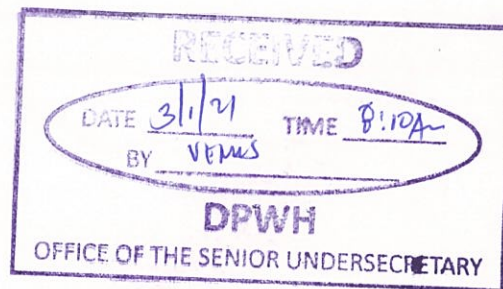 RECEIVED
DATE 3/1/21 TIME 8:10A
BY VENUS
DPWH
OFFICE OF THE SENIOR UNDERSECRETARY